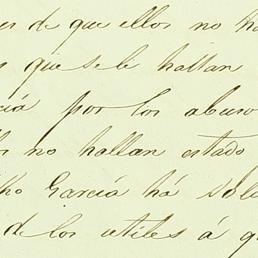 es de que ellos no ha
que se le hallan
cia por los abuso
no hallan estado
cho Garcia há soli
de los utiles á qu